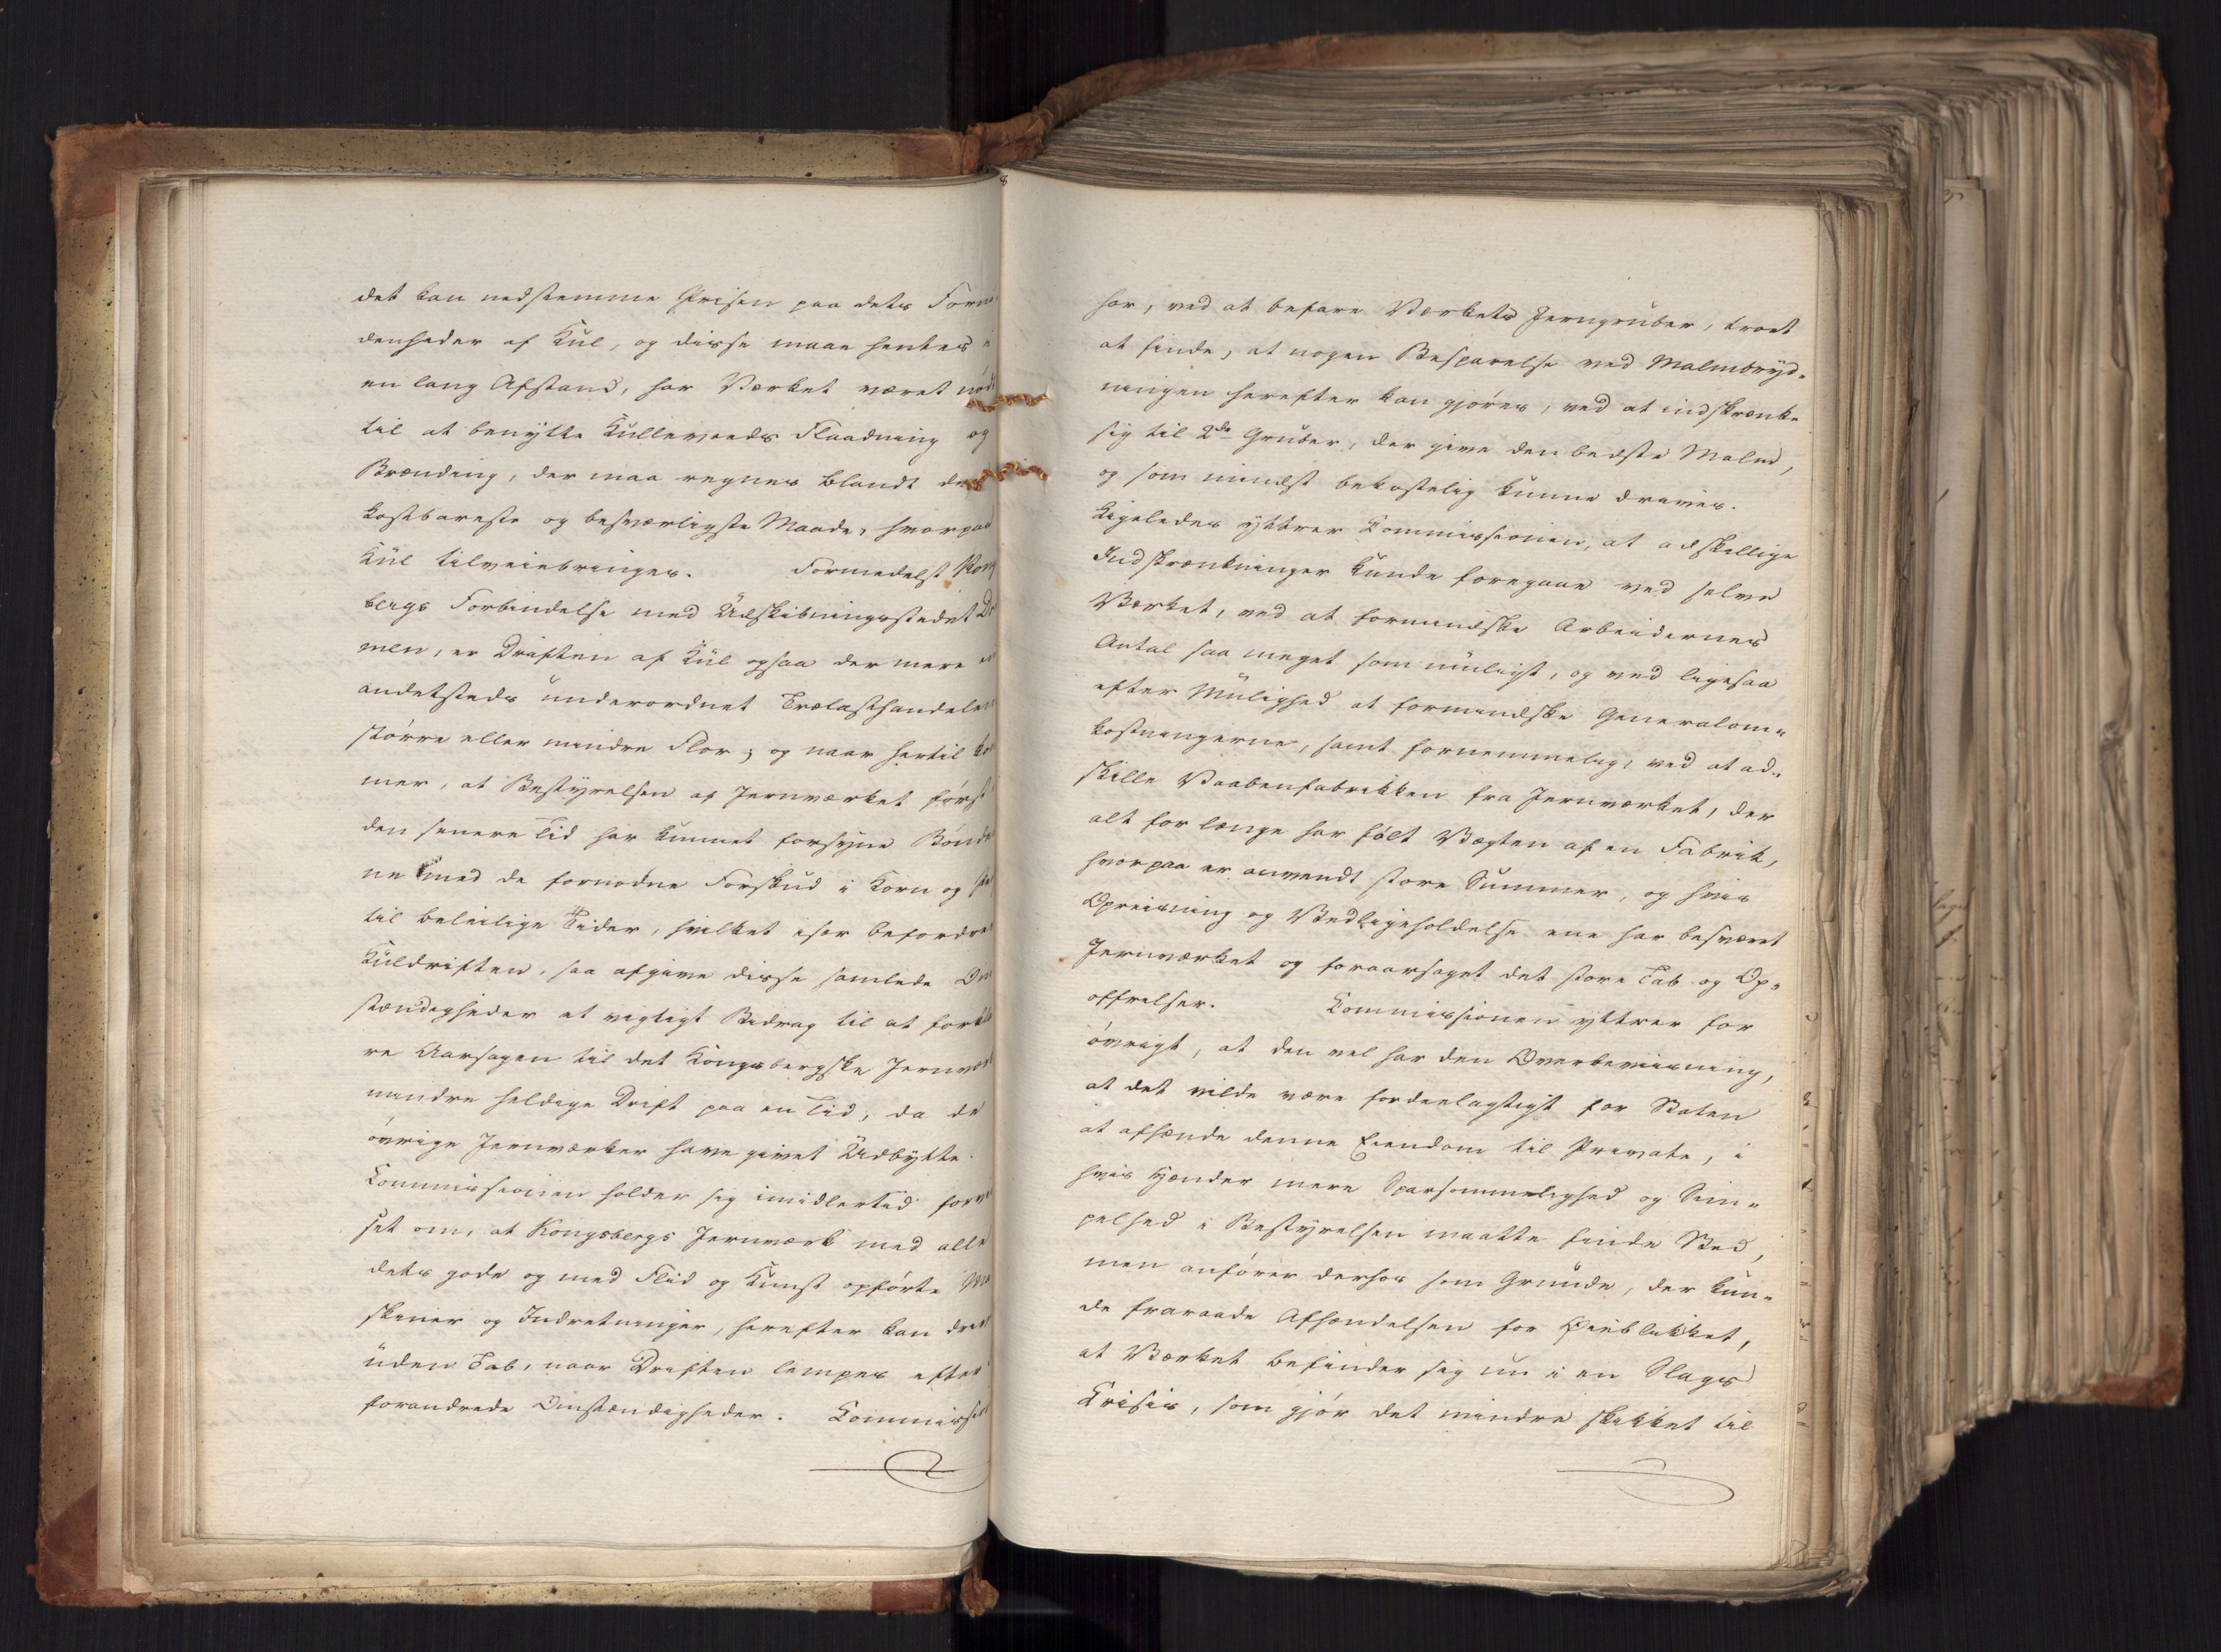 det kan nedstemme Prisen paa dets Forn
denheder af Kul, og disse maae hentes i
en lang Afstand, har Værket været nöd
til at benytte Kulleveeds Flaadning og
Brænding, der maa regnes blandt de
kostbareste og besværligste Maade, hvorpaa
Kul tilveiebringes. Formedelst Kong
bergs Forbindelse med Udskibningsstedet Dr
men, er Driften af Kul ogsaa der mere en
andetsteds underordnet Trælasthandelens
större eller mindre Flor; og naar hertil kom
mer, at Bestyrelsen af Jernværket först
den senere Tid har kunnet forsyne Bönder
ne med de fornødne Forskud i Korn og
til beleilige Tider, hvilket især befordrer
Kuldriften, saa afgive disse samlede Om
stændigheder et vigtigt Bidrag til at forkla
re Aarsagen til det Kongsbergske Jernværk
mindre heldige Drift paa en Tid, da de
övrige Jernværker have givet Udbytte.
Commissionen holder sig imidlertid forvis
set om, at Kongsbergs Jernværk med alle
dets gode og med Flid og Kunst opförte Ma
skiner og Indretninger, herefter kan drives
uden Tab, naar Driften lempes efter
forandrede Omstændigheder. Commission
har, ved at befare Værkets Jerngruber, troet
at finde, at nogen Besparelse ved Malmbryd-
ningen herefter kan gjöres, ved at indskrænke
sig til 2de Gruber, der give den bedste Malm,
og som mindst bekostelig kunne drives.
Ligeledes yttrer Commissionen, at adskillige
Indskrænkninger kunde foregaae ved selve
Værket, ved at formindske Arbeidernes
Antal saa meget som muligt, og ved ligesaa
efter Mulighed at formindske Generalom-
kostningerne, samt fornemmelig, ved at ad-
skille Vaabenfabrikken fra Jernværket, der
alt for længe har fölt Vægten af en Fabrik,
hvorpaa er anvendt store Summer, og hvis
Opreisning og Vedligeholdelse ene har besværet
Jernværket og foraarsaget det store Tab og Op-
offrelser. Commissionen yttrer for
övrigt, at den vel har den Overbeviisning,
at det vilde være fordeelagtigt for Staten
at afhænde denne Eiendom til Private, i
hvis Hænder mere Sparsommelighed og Sim-
pelhed i Bestyrelsen maatte finde Sted,
men anförer derhos som Grunde, der kun-
de fraraade Afhændelsen for Øieblikket,
at Værket befinder sig nu i en Slags
Krisis, som gjör det mindre skikket til